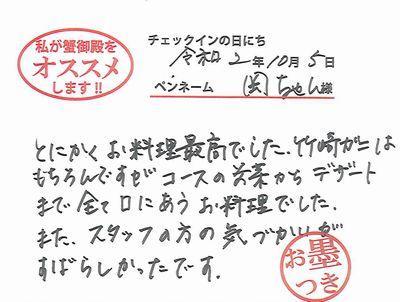 私が蟹御殿を
オススメ
します!!
チェックインの日にち
令和2年10月5日
ペンネーム 岡ちゃん様
とにかくお料理最高でした。竹崎ガニは
もちろんですがコースの前菜からデザート
まで全て口にあうお料理でした。
また、スタッフの方の気づかいが
すばらしかったです。
お墨
つき